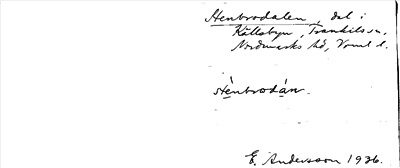 Stenbrodalen, dal i
Källebyn, Trankils sn,
Nordmarks hd, Vrml d.
stènbrodán.
E. Andersson 1926.